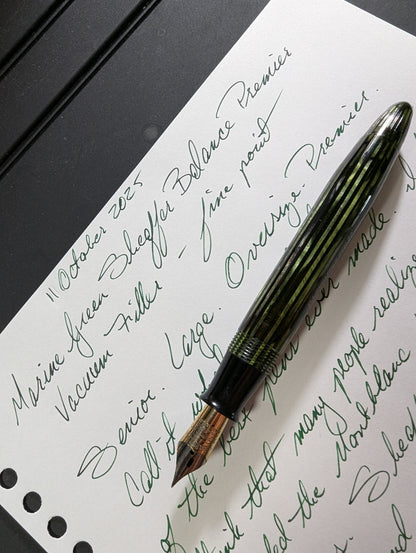 11 October 2025
Marine Green Sheaffer Balance Premier
Vacuum Filler - fine point
Senior. Large. Oversize. Premier.
Call it
of the best pens ever made. I
think that many people realize
the Montblanc
Shea